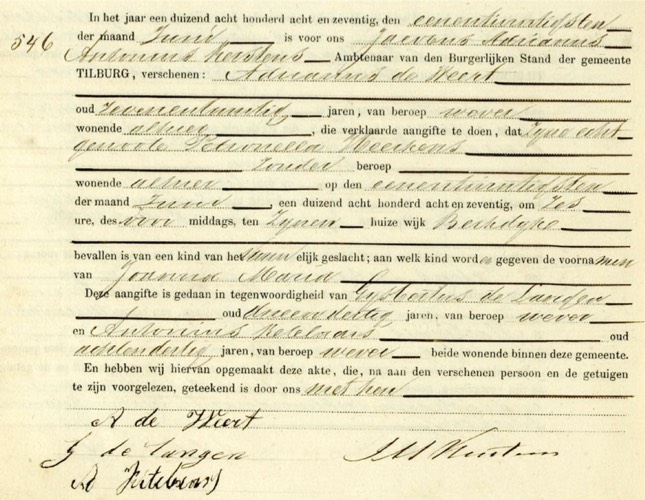 In het jaar een duizend acht honderd acht en zeventig, den eenentwintigsten
546 der maand Juni is voor ons Jacobus Adrianus
Antonius Kerstens Ambtenaar van den Burgerlijken Stand der gemeente
TILBURG, verschenen: Adrianus de Weert
oud zevenentwintig jaren, van beroep wever
wonende alhier, die verklaarde aangifte te doen, dat zijne echt
genoote Petronella
zonder beroep
wonende alhier op den eenentwintigsten
der maand Juni, een duizend acht honderd acht en zeventig, om zes
ure, des voor middags, ten zijnen huize wijk Berkdijk
bevallen is van een kind van het elijk geslacht; aan welk kind worden gegeven de voornamen
van Joanna Maria
Deze aangifte is gedaan in tegenwoordigheid van Gijsbertus de Langen
oud drieendertig jaren, van beroep wever
en Antonius Ketelaars oud
achtendertig jaren, van beroep wever beide wonende binnen deze gemeente.
En hebben wij hiervan opgemaakt deze akte, die, na aan den verschenen persoon en de getuigen
te zijn voorgelezen, geteekend is door ons met hen
A de Weert
G de Langen
A Ketelaars